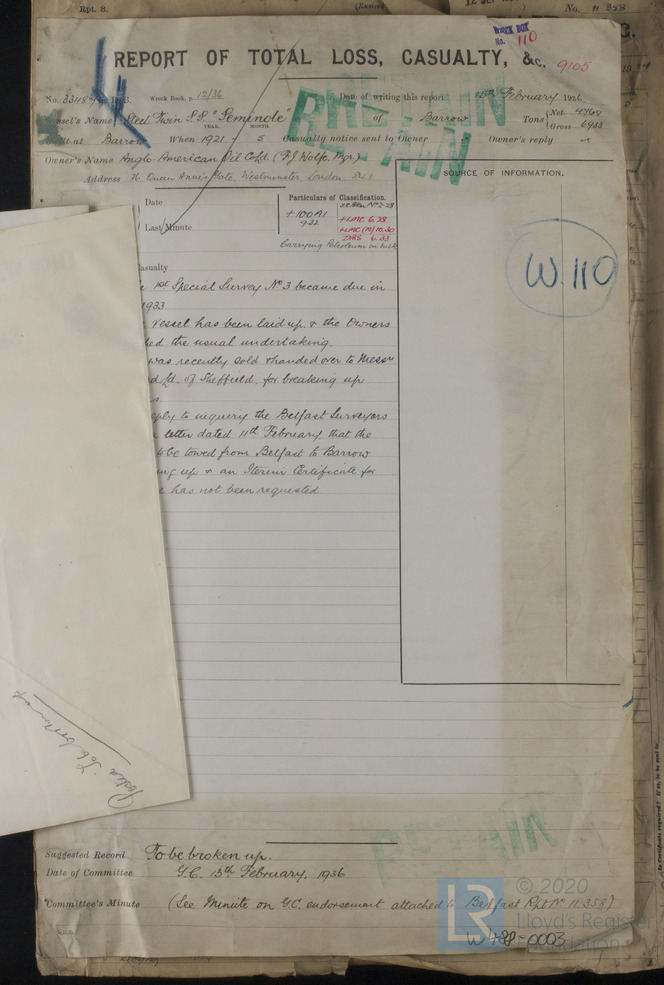 Rpt. 8.
No. 11358
WRECK BOX
No. 110
REPORT OF TOTAL LOSS, CASUALTY, &c. 9105
No. 33487 in R.B. Wreck Book, p. 12/36 Date of writing this report February 1936
Vessel's Name Steel Twin S.S. "Seminole" of Barrow Tons Net Gross 6923
RETAIN
RETAIN
Built at Barrow When 1921 - 5 YEAR. MONTH. Casualty notice sent to Owner Owner's reply
Owner's Name Anglo American Oil Co Ld. (F.J. Wolfe, Mgr)
Address 36 Queen Anne's Gate, Westminster, London. S.W.1
SOURCE OF INFORMATION.
Date
Particulars of Classification.
+100A1
+LMC 6.28
Last Minute
9.32
6.33
Carrying Petroleum in bulk
W.110
Casualty
1st Special Survey No 3 became due in
1933
vessel has been laid up & the Owners
the usual undertaking
was recently sold & handed over to Messrs
Ld. of Sheffield, for breaking up
reply to inquiry the Belfast Surveyors
letter dated 11th February, that the
to be towed from Belfast to Barrow
up & an Iterim Certificate for
has not been requested
RETAIN
Suggested Record To be broken up.
Date of Committee G.C. 13th February, 1936
Committee's Minute (See Minute on G.C. endorsement attached to Belfast Rpt No 11.358)
LR © 2020
Lloyd's Register
Foundation
W488-0003